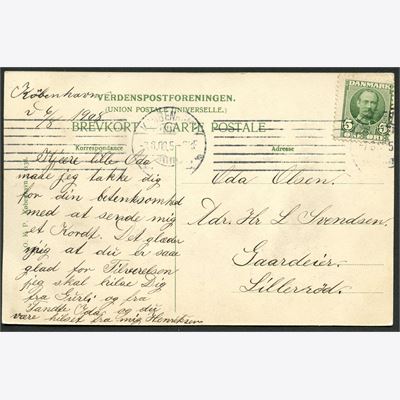 København
d 6/8 1908
VERDENSPOSTFORENINGEN.
(UNION POSTALE UNIVERSELLE.)
BREVKORT — CARTE POSTALE
Korrespondance
Adresse
DANMARK
5 5
ØRE
Kjære lille Oda
maae jeg takke dig
for din betenksomhed
med at sende mig
et Kordt. Det glæder
mig at du er saae
glad for Tilverelsen
jeg skal hilse Dig
fra Gurli og fra
Tandte Oda og du
være hilset fra mig Henriksen
Oda Olsen.
Adr. Hr L Svendsen.
Gaardeier.
Lillerød.